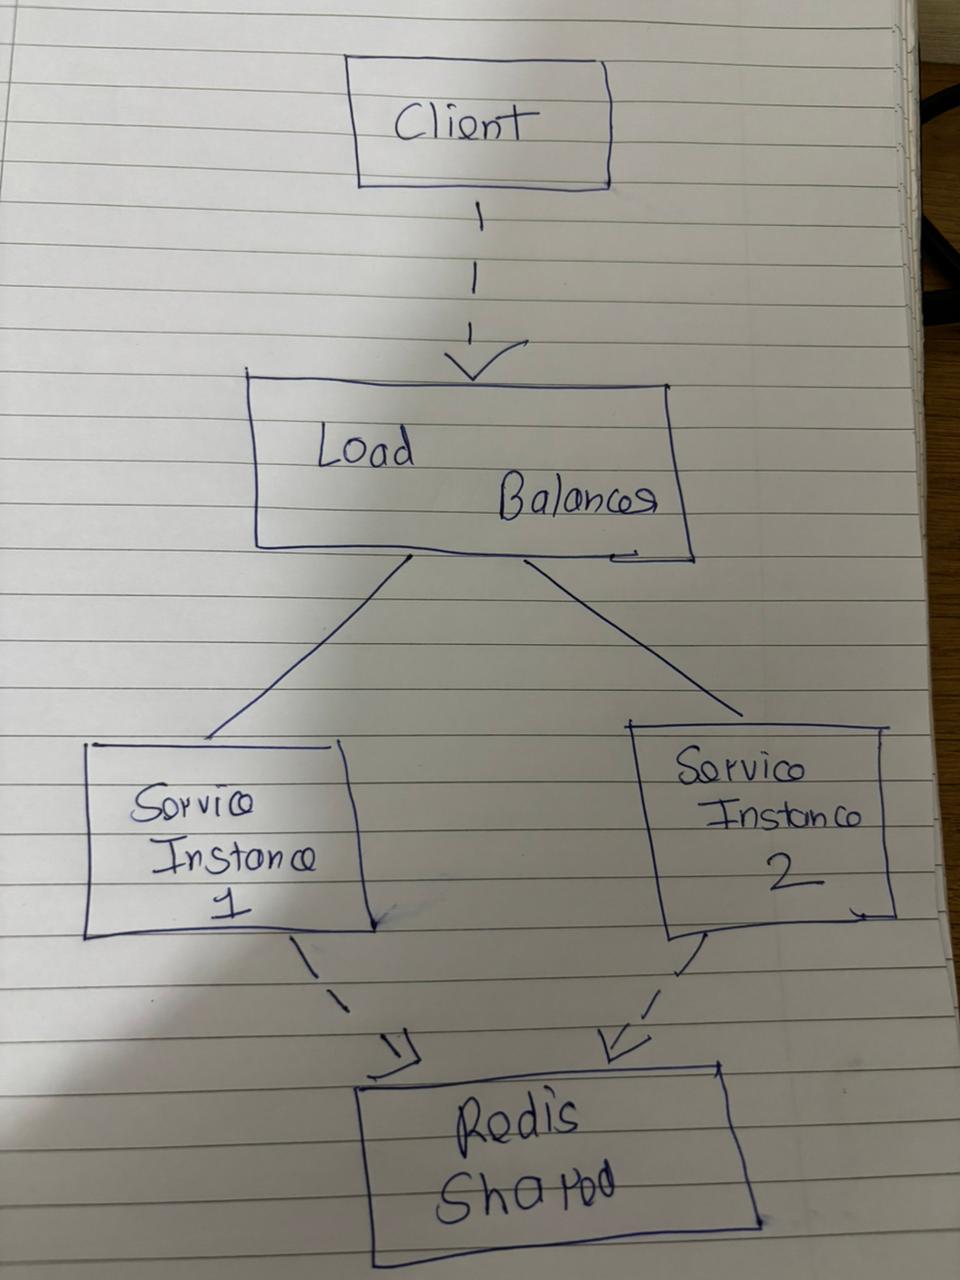 Client
Load
Balancer
Service
Instance
1
Service
Instance
2
Redis
Shared